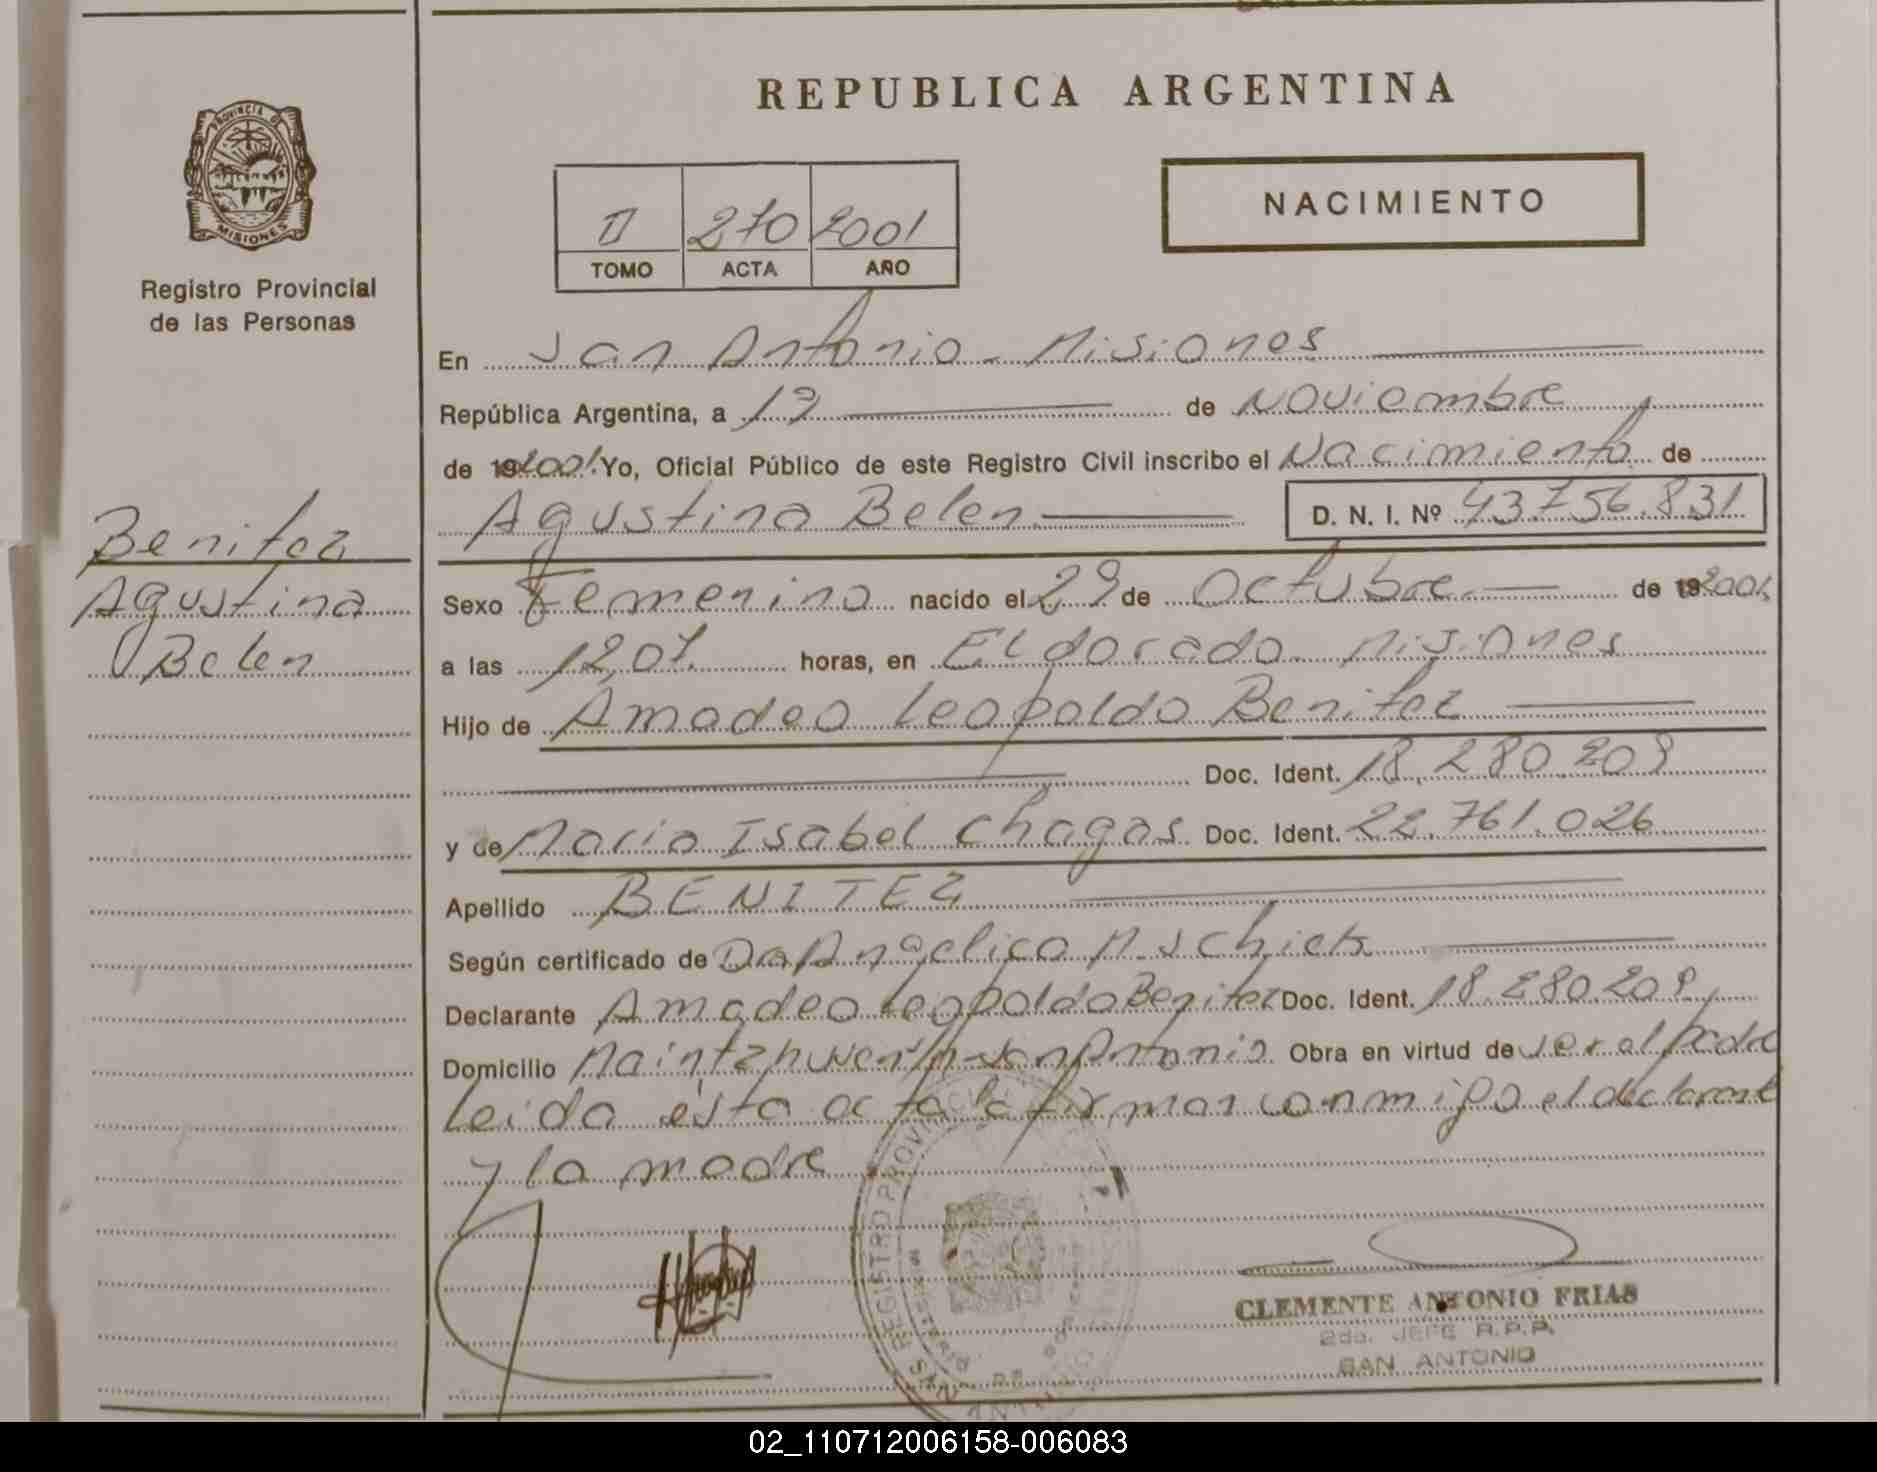 REPUBLICA ARGENTINA
PROVINCIA DE
MISIONES
Registro Provincial
de las Personas
NACIMIENTO
II 270 2001
TOMO ACTA AÑO
En San Antonio - Misiones
República Argentina, a 19 de Noviembre
de 192001. Yo, Oficial Público de este Registro Civil inscribo el Nacimiento de
Agustina Belen D. N. I. Nº 43.756.831
Benitez
Agustina
Belen
Sexo Femenino nacido el 29 de Octubre de 192001
a las 12,07 horas, en Eldorado Misiones
Hijo de Amadeo Leopoldo Benitez
Doc. Ident. 18.280.209
y de Maria Isabel Chagas Doc. Ident. 22.761.026
Apellido BENITEZ
Según certificado de Dra Angelica M.
Declarante Amadeo Leopoldo Benitez Doc. Ident. 18.280.209
Domicilio San Antonio Obra en virtud de ser el padre
leida ésta acta la firman conmigo el declarante
y la madre
REGISTRO PROVINCIAL
CLEMENTE ANTONIO FRIAS
2do. JEFE R.P.P.
SAN ANTONIO
02_110712006158-006083